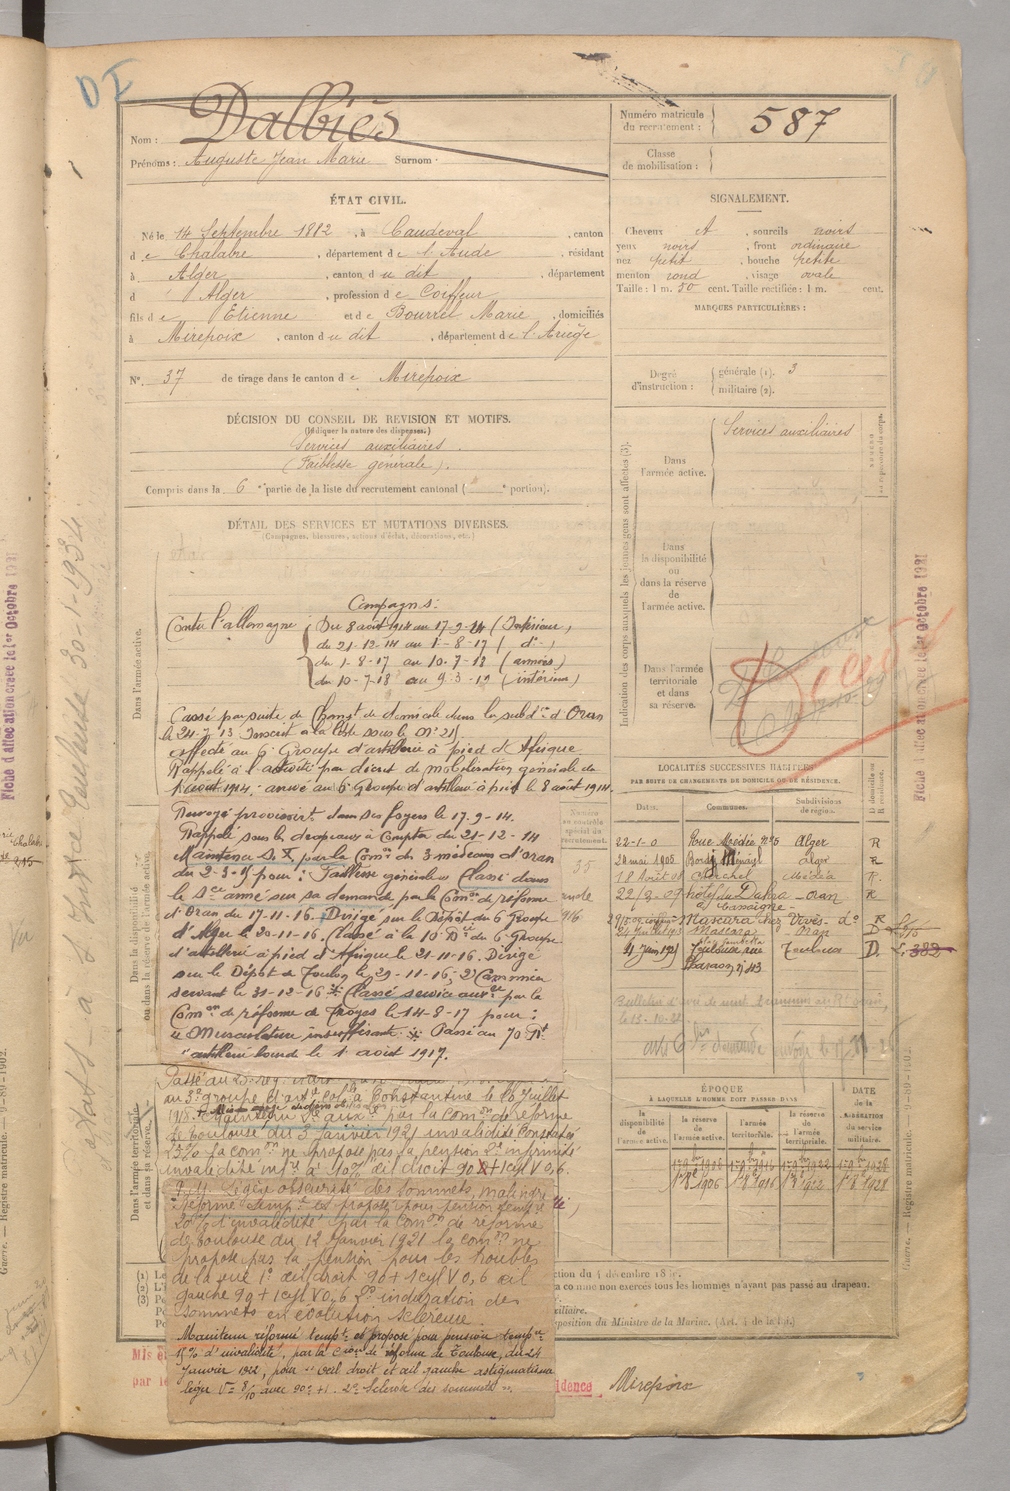 DI
Dalbiès
Nom :
Prénoms : Auguste Jean Marie Surnom :
Numéro matricule du recrutement : 587
Classe de mobilisation :
ÉTAT CIVIL.
Né le 14 Septembre 1882, à Caudeval, canton
de Chalabre, département de l'Aude, résidant
à Alger, canton du dit, département
d'Alger, profession de Coiffeur
fils de Etienne et de Bourrel Marie, domiciliés
à Mirepoix, canton du dit, département de l'Ariège
N° 37 de tirage dans le canton de Mirepoix
SIGNALEMENT.
Cheveux et, sourcils noirs
yeux noirs, front ordinaire
nez petit, bouche petite
menton rond, visage ovale
Taille : 1 m. 50 cent. Taille rectifiée : 1 m. cent.
MARQUES PARTICULIÈRES :
Degré d'instruction : générale (1). 3
militaire (2).
DÉCISION DU CONSEIL DE REVISION ET MOTIFS.
(Indiquer la nature des dispenses.)
Services auxiliaires
(Faiblesse générale).
Compris dans la 6e partie de la liste du recrutement cantonal ( e portion).
DÉTAIL DES SERVICES ET MUTATIONS DIVERSES.
(Campagnes, blessures, actions d'éclat, décorations, etc.)
Dans l'armée active.
Campagnes :
Contre l'allemagne Du 8 août 1914 au 17-9-14 (Intérieur)
du 21-12-14 au 1-8-17 (d°-)
du 1-8-17 au 10-7-18 (armées)
du 10-7-18 au 9-3-19 (intérieur)
Passé par suite de Changt de domicile dans la subdon d'Oran
le 24-7-13 Inscrit à la liste sous le N° 21
affecté au 6e Groupe d'artillerie à pied d'Afrique
Rappelé à l'activité par décret de mobilisation générale du
1er août 1914. arrivé au 6e Groupe d'artillerie à pied le 8 août 1914.
Dans la disponibilité ou dans la réserve de l'armée active.
Renvoyé provisoirt dans ses foyers le 17-9-14.
Rappelé sous les drapeaux à compter du 21-12-14
Maintenu S.X. par la Comon des 3 médecins d'oran
du 2-3-15 pour : Faiblesse générale. Classé dans
le Sce armé sur sa demande par la Comon de réforme
d'Oran du 17-11-16. Dirigé sur le Dépôt du 6 Groupe
d'Alger le 20-11-16. Classé à la 10e Bie du 6 Groupe
d'artillerie à pied d'Afrique le 21-11-16. Dirigé
sur le Dépôt de Toulon le 29-11-16, 2e Canonnier
servant le 31-12-16 Classé service auxre par la
Comon de réforme de Troyes le 14-8-17 pour :
« Musculature insuffisante. Passé au 70 Rt
d'artillerie lourde le 1 août 1917.
Dans l'armée territoriale et dans sa réserve.
au 3e groupe d'artie col à Constantine le 10 juillet
1918. Maintenu Sce auxre par la Comon de réforme
de Toulouse du 3 Janvier 1921 invalidité constatée
25% la comon ne propose pas la pension 2e infirmité
invalidité infre à 10% œil droit 90+1cyl V 0,6.
9-11. Légère obscurité des sommets, malingre
Réformé Tempre et proposé pour pension tempre
20% d'invalidité par la Comon de réforme
de Toulouse du 12 Janvier 1921 la comon ne
propose pas la pension pour les troubles
de la vue 1° œil droit 90+1cyl V 0,6 œil
gauche 90+1cyl V 0,6 2° induration des
sommets en évolution scléreuse.
Maintenu réformé tempre et proposé pour pension tempre
15% d'invalidité, par la Comon de réforme de Toulouse, du 24
Janvier 1922, pour « œil droit et œil gauche astigmatisme
léger V= 8/10 avec 90°+1. 2° Sclérose des sommets ».
Indication des corps auxquels les jeunes gens sont affectés (3).
Dans l'armée active. Services auxiliaires
Dans la disponibilité ou dans la réserve de l'armée active.
Dans l'armée territoriale et dans sa réserve.
Décédé
LOCALITÉS SUCCESSIVES HABITÉES
PAR SUITE DE CHANGEMENTS DE DOMICILE OU DE RÉSIDENCE.
Dates. Communes. Subdivisions de région. D. domicile ou R. résidence.
22-1-0 Rue Médée n°5 Alger R
24 mai 1905 Bordj Ménaïel alger R
18 Août 08 Cherchel Médéa R.
22/2/09 hôtel du Dahra à Cassaigne - oran R
Mascara chez Vivès d° R
Mascara Oran D
11 Juin 1921 Toulouse rue Baraon n° 43 Toulouse D. 382
le 13-10-31
ÉPOQUE
À LAQUELLE L'HOMME DOIT PASSER DANS
la disponibilité de l'armée active. la réserve de l'armée active. l'armée territoriale. la réserve de l'armée territoriale.
DATE de la LIBÉRATION du service militaire.
1er 9bre 1906 1er 9bre 1916 1er 9bre 1922 1er 9bre 1928
1er 8e 1906 1er 8e 1916 1er 8e 1922 1er 8e 1928
Mirepoix
Fiche d'affectation créée le 1er Octobre 1921
Fiche d'affectation créée le 1er Octobre 1921
Guerre. — Registre matricule. — 9-89-1902.